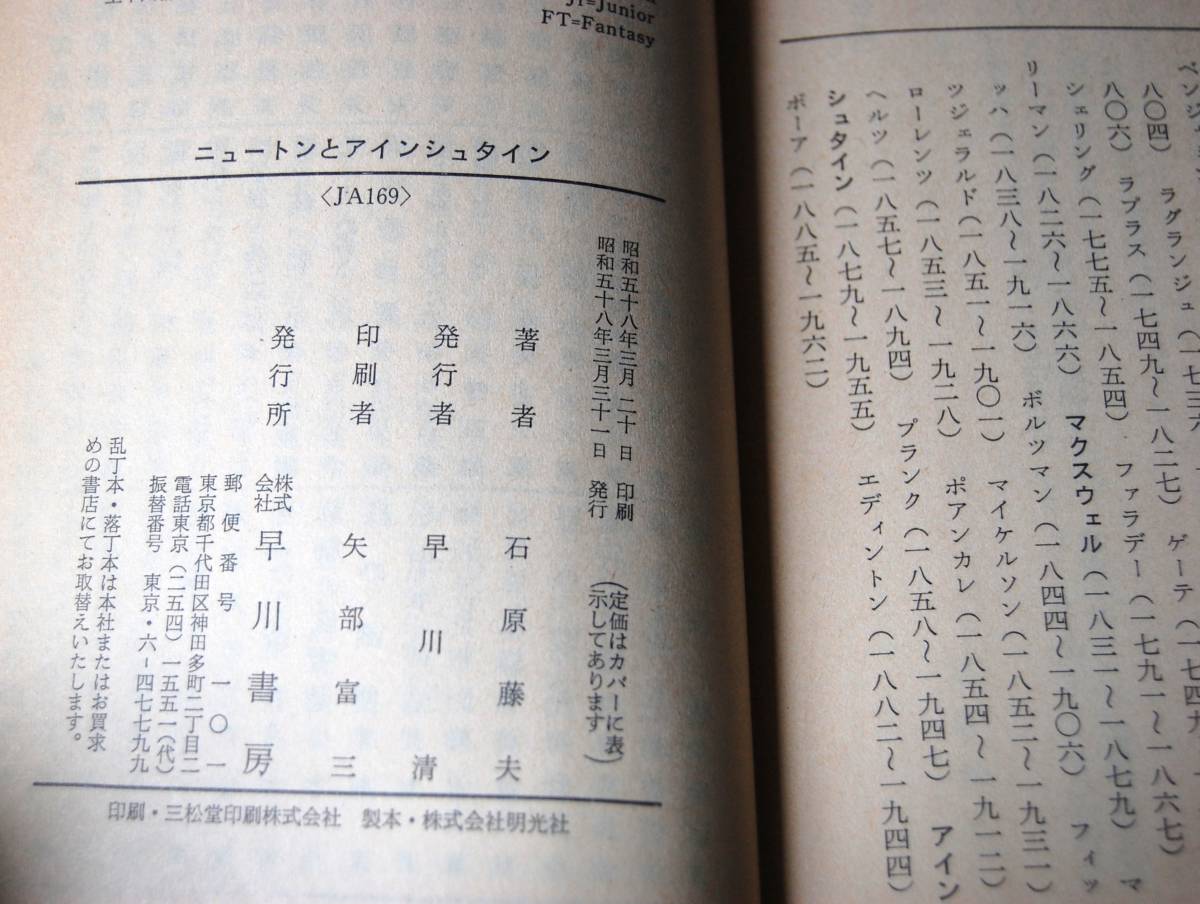 八〇四）　ラグランジュ（一七三六
八〇六）　ラプラス（一七四九～一八二七）　ゲーテ（一七四九～一八
シェリング（一七七五～一八五四）　ファラデー（一七九一～一八六七）
リーマン（一八二六～一八六六）　マクスウェル（一八三一～一八七九）　マ
ッハ（一八三八～一九一六）　ボルツマン（一八四四～一九〇六）　フィッ
ツジェラルド（一八五一～一九〇一）　マイケルソン（一八五二～一九三一）
ローレンツ（一八五三～一九二八）　ポアンカレ（一八五四～一九一二）
ヘルツ（一八五七～一八九四）　プランク（一八五八～一九四七）　アイン
シュタイン（一八七九～一九五五）　エディントン（一八八二～一九四四）
ボーア（一八八五～一九六二）
Jr=Junior
FT=Fantasy
ニュートンとアインシュタイン
〈JA169〉
昭和五十八年三月二十日　印刷
昭和五十八年三月三十一日　発行
（定価はカバーに表
示してあります）
著者　石原藤夫
発行者　早川清
印刷者　矢部富三
発行所　株式会社　早川書房
郵便番号　一〇一
東京都千代田区神田多町二丁目二
電話東京（二五四）一五五一（代）
振替番号　東京・六-四七七九九
乱丁本・落丁本は本社またはお買求
めの書店にてお取替えいたします。
印刷・三松堂印刷株式会社　製本・株式会社明光社